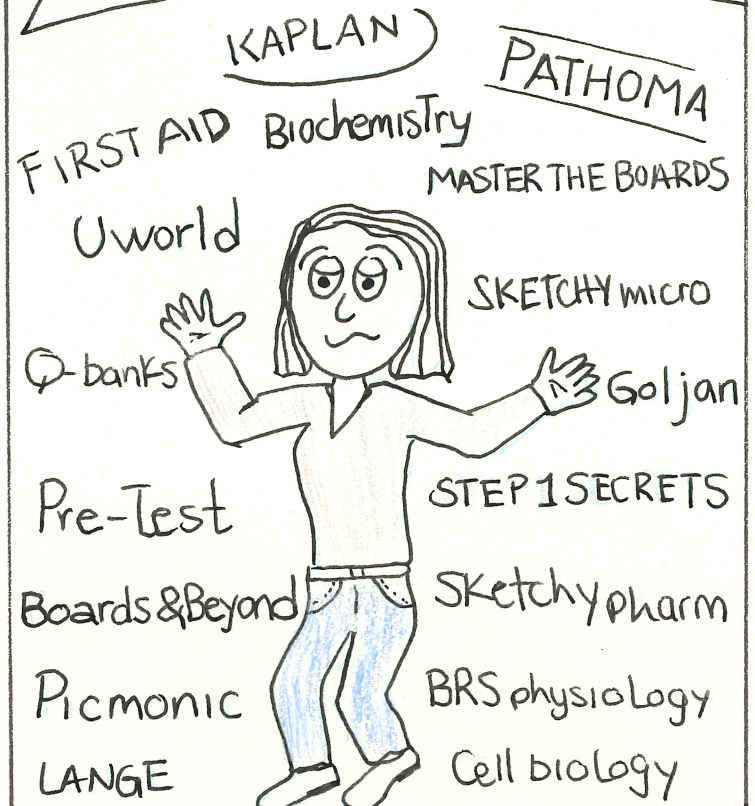 KAPLAN
PATHOMA
FIRST AID
Biochemistry
MASTER THE BOARDS
Uworld
SKETCHY micro
Q-banks
Goljan
Pre-Test
STEP 1 SECRETS
Boards & Beyond
Sketchy pharm
Picmonic
BRS physiology
LANGE
Cell biology